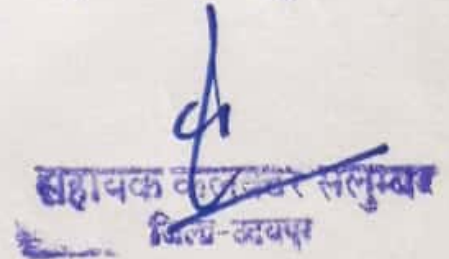 सहायक कलक्टर सलुम्बर
जिला-उदयपुर